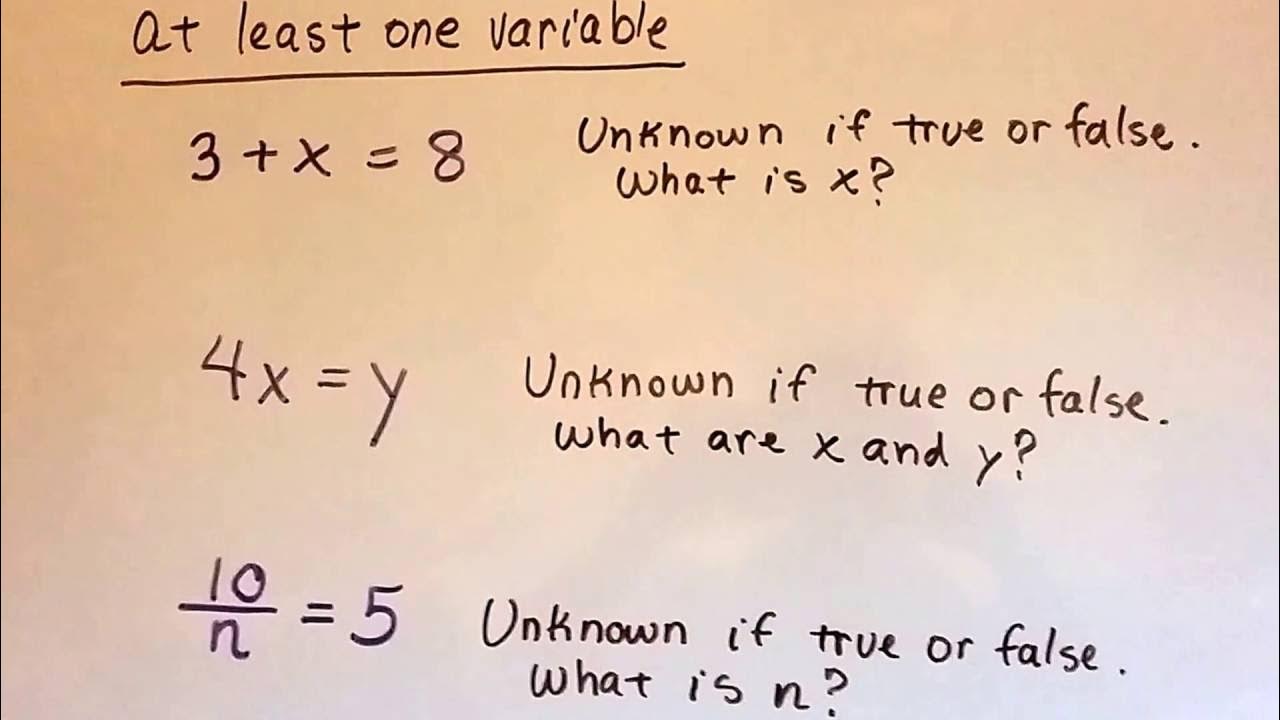 at least one variable
3 + x = 8
Unknown if true or false.
What is x?
4x = y
Unknown if true or false.
What are x and y?
10/n = 5
Unknown if true or false.
What is n?